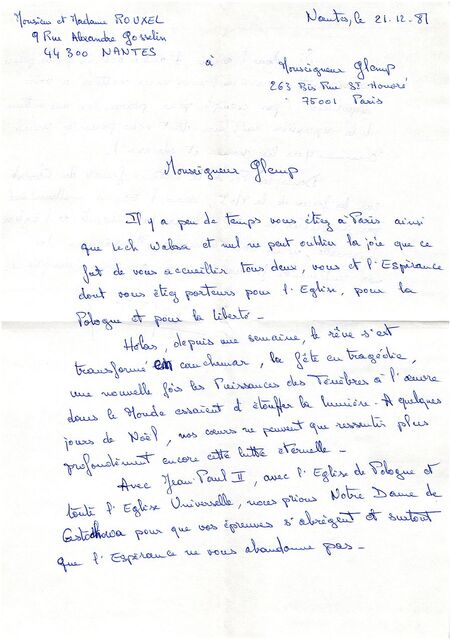 Monsieur et Madame ROUXEL
9 Rue Alexandre Gosselin
44 300 NANTES
Nantes, le 21.12.81
à
Monseigneur Glemp
263 Bis Rue St Honoré
75001 Paris
Monseigneur Glemp
Il y a peu de temps vous étiez à Paris ainsi
que Lech Walesa et nul ne peut oublier la joie que ce
fut de vous accueillir tous deux, vous et l'Espérance
dont vous étiez porteurs pour l'Eglise, pour la
Pologne et pour la liberté -
Hélas, depuis une semaine, le rêve s'est
transformé en cauchemar, la fête en tragédie,
une nouvelle fois les Puissances des Ténèbres à l'œuvre
dans le Monde essaient d'étouffer la lumière. A quelques
jours de Noël, nos cœurs ne peuvent que ressentir plus
profondément encore cette lutte éternelle -
Avec Jean Paul II, avec l'Eglise de Pologne et
toute l'Eglise Universelle, nous prions Notre Dame de
pour que vos épreuves s'abrègent et surtout
que l'Espérance ne vous abandonne pas -